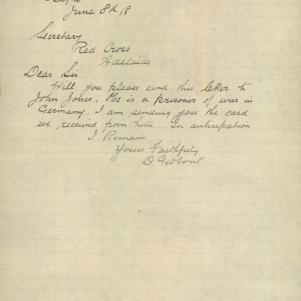 June 8th 18
Secretary
Red Cross
Adelaide
Dear Sir
Will you please send this letter to
John Jones. He is a Prisoner of war in
Germany. I am sending you the card
we received from him. In anticipation
I Remain
Yours Faithfully
D Gibbons